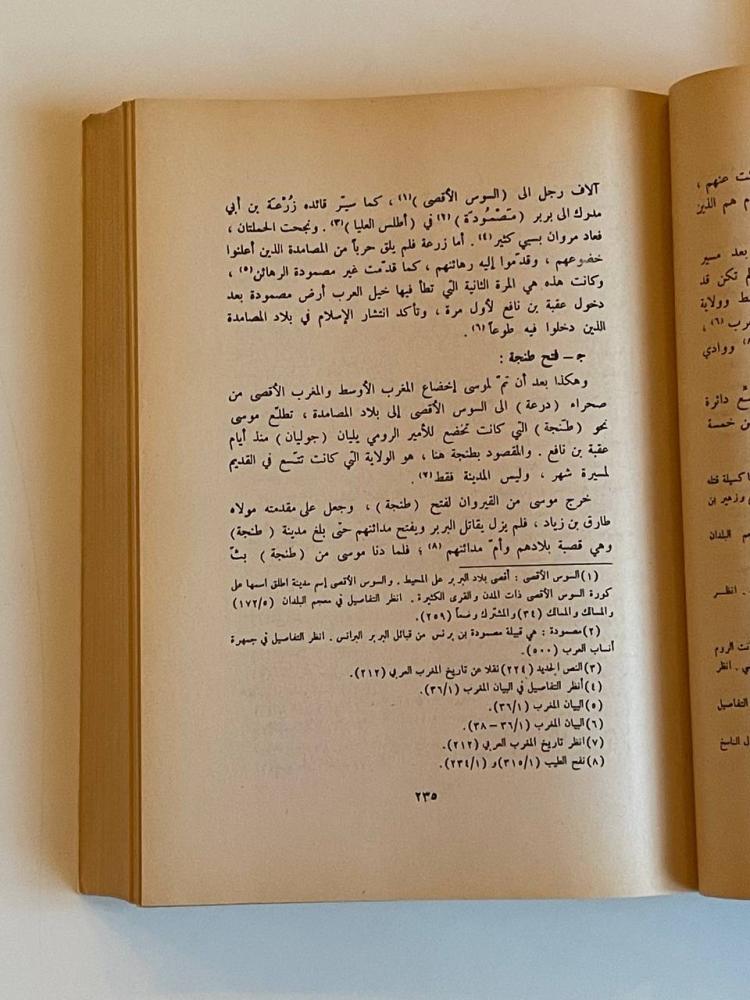 آلاف رجل الى (السوس الأقصى)(١) ، كما سيّر قائده زُرْعَة بن أبي
مدرك الى بربر (مَصْمُودَة)(٢) في (أطلس العليا)(٣) . ونجحت الحملتان ،
فعاد مروان بسبي كثير(٤) . أما زرعة فلم يلق حرباً من المصامدة الذين أعلنوا
خضوعهم ، وقدّموا إليه رهائنهم ، كما قدّمت غير مصمودة الرهائن(٥) ،
وكانت هذه هي المرة الثانية التي تطأ فيها خيل العرب أرض مصمودة بعد
دخول عقبة بن نافع لأول مرة ، وتأكد انتشار الإسلام في بلاد المصامدة
الذين دخلوا فيه طوعاً(٦) .
جـ - فتح طنجة :
وهكذا بعد أن تمّ لموسى إخضاع المغرب الأوسط والمغرب الأقصى من
صحراء (درعة) الى السوس الأقصى إلى بلاد المصامدة ، تطلّع موسى
نحو (طَنجة) التي كانت تخضع للأمير الرومي يليان (جوليان) منذ أيام
عقبة بن نافع . والمقصود بطنجة هنا ، هو الولاية التي كانت تتّسع في القديم
لمسيرة شهر ، وليس المدينة فقط(٧) .
خرج موسى من القيروان لفتح (طنجة) ، وجعل على مقدمته مولاه
طارق بن زياد ، فلم يزل يقاتل البربر ويفتح مدائنهم حتى بلغ مدينة (طنجة)
وهي قصبة بلادهم وأمّ مدائنهم(٨) ؛ فلما دنا موسى من (طنجة) بثّ
(١) السوس الأقصى : أقصى بلاد البربر على المحيط . والسوس الأقصى إسم مدينة اطلق اسمها على
كورة السوس الأقصى ذات المدن والقرى الكثيرة . انظر التفاصيل في معجم البلدان (١٧٢/٥)
والمسالك والممالك (٣٤) والمشترك وضعاً (٢٥٩).
(٢) مصمودة : هي قبيلة مصمودة بن برنس من قبائل البربر البرانس . انظر التفاصيل في جمهرة
أنساب العرب (٥٠٠).
(٣) النص الجديد (٢٢٤) نقلا عن تاريخ المغرب العربي (٢١٢).
(٤) أنظر التفاصيل في البيان المغرب (٣٦/١).
(٥) البيان المغرب (٣٦/١).
(٦) البيان المغرب (٣٦/١ – ٣٨).
(٧) انظر تاريخ المغرب العربي (٢١٢).
(٨) نفح الطيب (٣١٥/١) و (٢٣٤/١).
٢٣٥
ت عنهم ،
م هم الذين
بعد مسير
لم تكن قد
ط وولاية
رب (٦) ،
ووادي
ع دائرة
ن خمسة
وزهير بن
م البلدان
. انظر
نت الروم
ي . انظر
التفاصيل
ل الناسخ